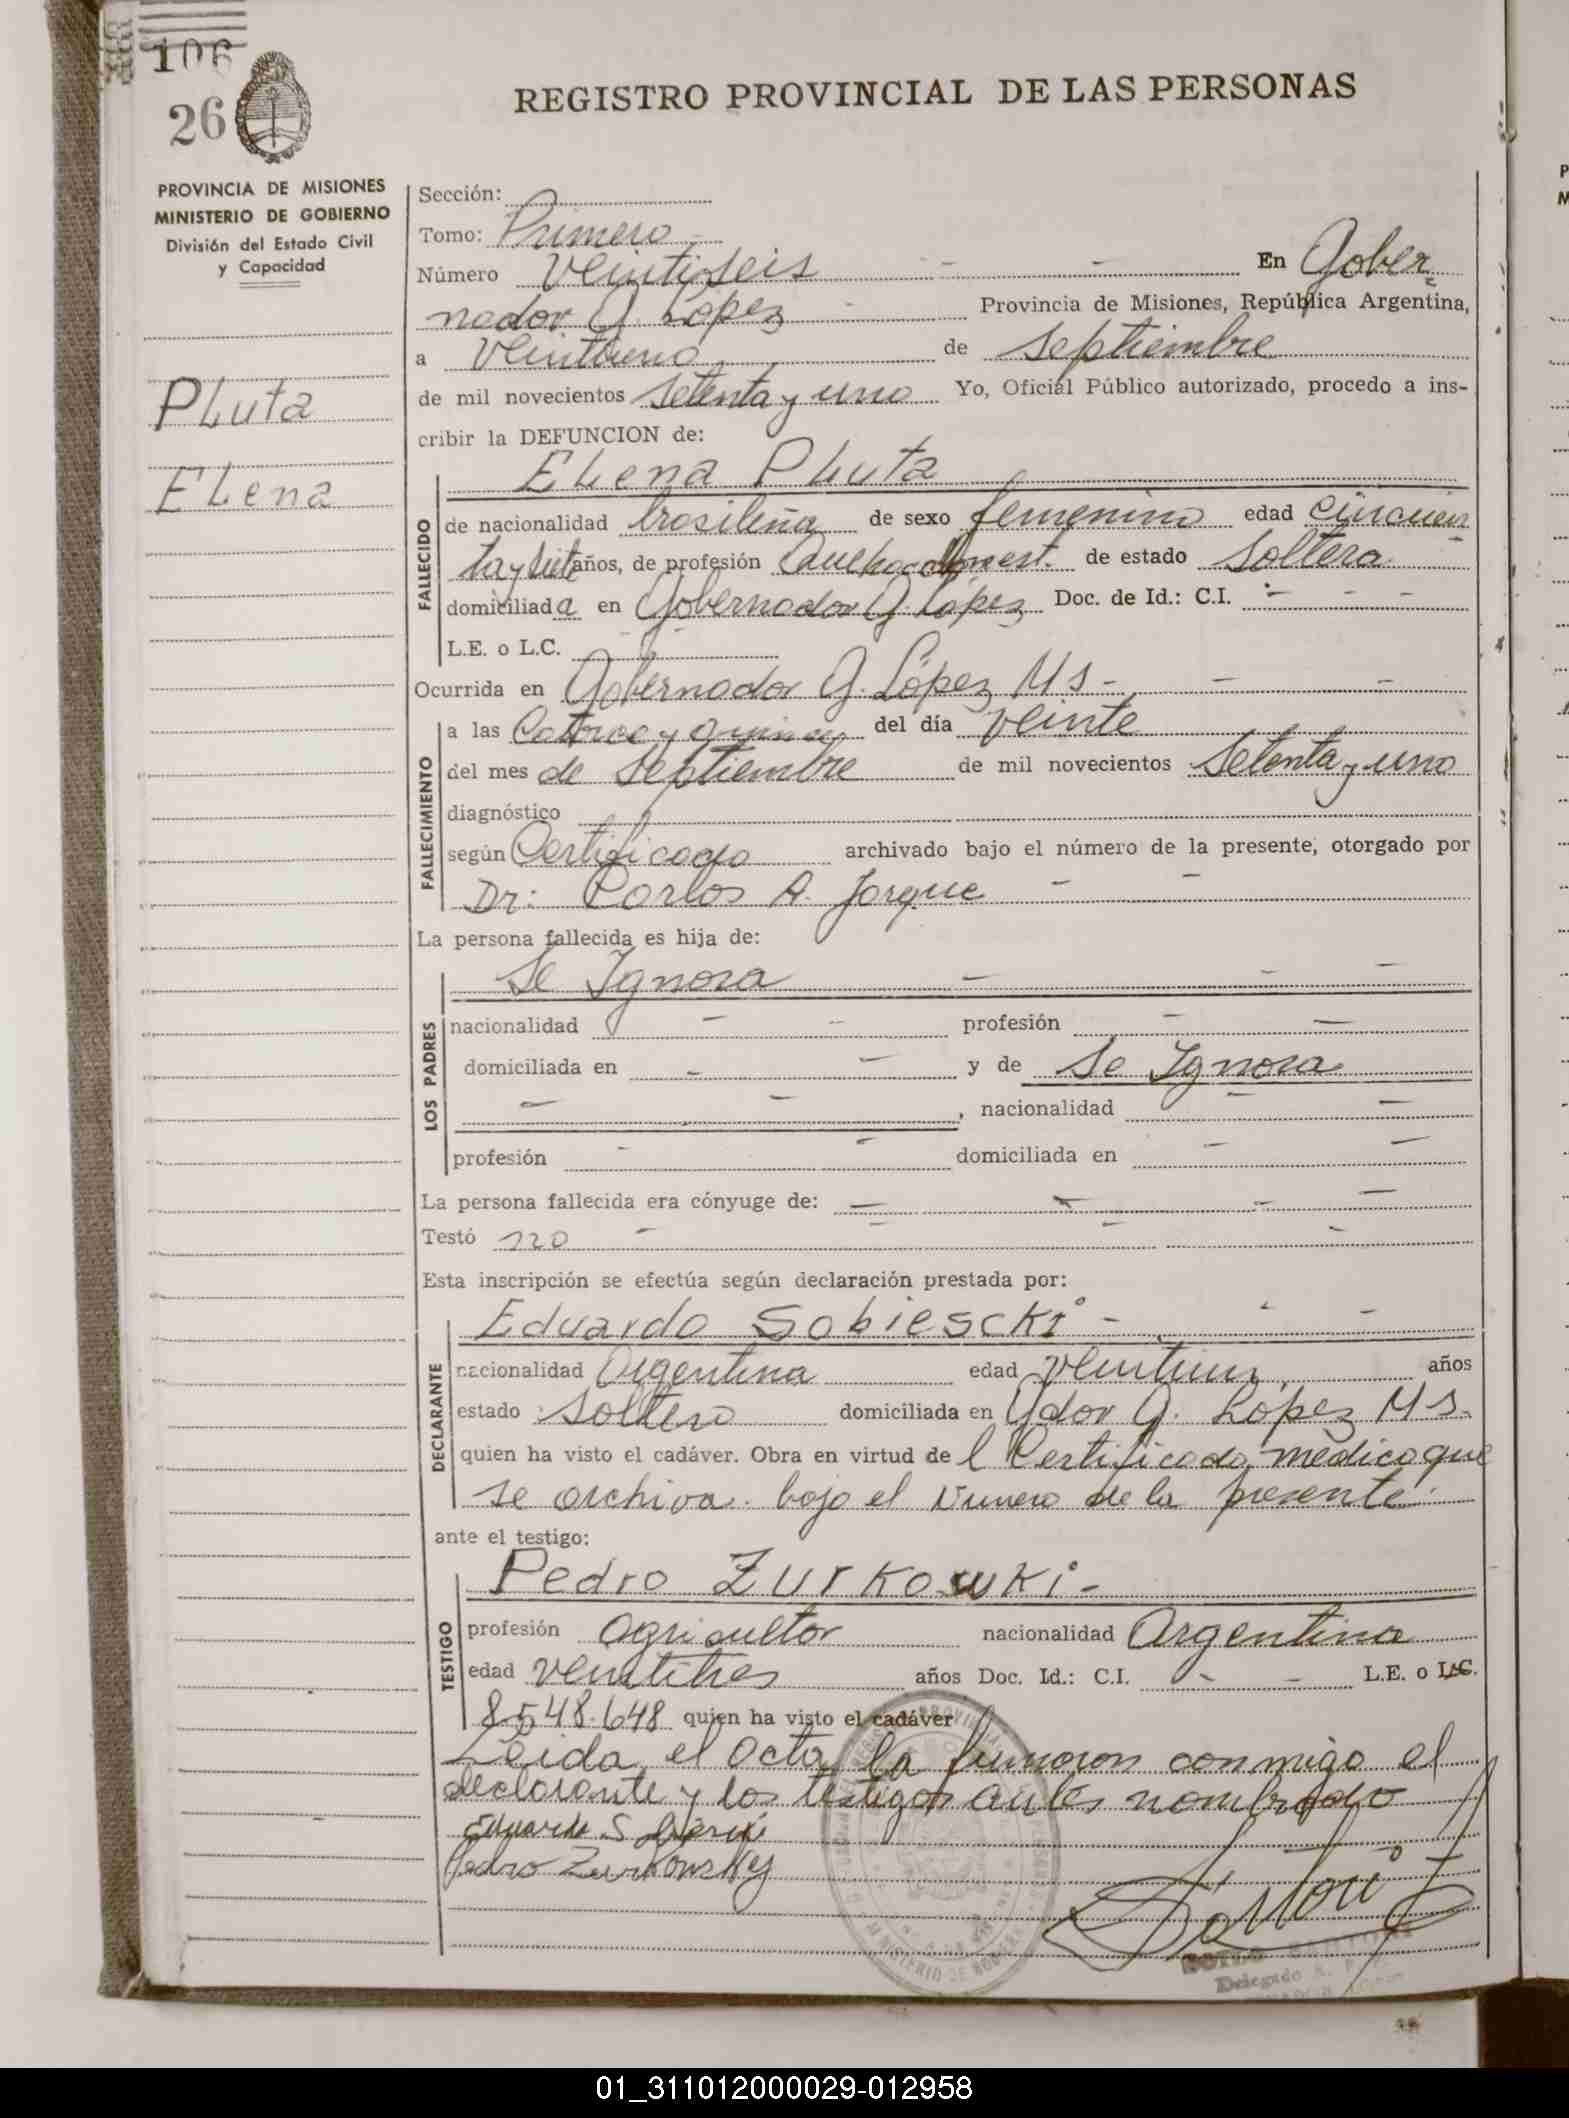 106
26
REGISTRO PROVINCIAL DE LAS PERSONAS
PROVINCIA DE MISIONES
MINISTERIO DE GOBIERNO
División del Estado Civil
y Capacidad
Pluta
Elena
Sección:
Tomo: Primero
Número Veintiseis - - En Gober=
nador G. López - Provincia de Misiones, República Argentina,
a Veintiuno de Septiembre
de mil novecientos Setenta y uno Yo, Oficial Público autorizado, procedo a ins-
cribir la DEFUNCION de:
Elena Pluta
FALLECIDO
de nacionalidad brasileña de sexo femenino edad cincuen
ta y siete años, de profesión Quehac. domest. de estado Soltera
domiciliada en Gobernador G. López Doc. de Id.: C.I. - - -
L.E. o L.C.
Ocurrida en Gobernador G. López Ms - - -
FALLECIMIENTO
a las Catorce y quince del día Veinte
del mes de Septiembre de mil novecientos Setenta y uno
diagnóstico
según Certificado archivado bajo el número de la presente, otorgado por
Dr: Carlos A. Jorque - -
La persona fallecida es hija de:
LOS PADRES
Se Ignora - - -
nacionalidad - - profesión - -
domiciliada en - - y de Se Ignora
- - , nacionalidad - -
profesión - - domiciliada en - -
La persona fallecida era cónyuge de: - - - -
Testó no - - -
Esta inscripción se efectúa según declaración prestada por:
DECLARANTE
Eduardo Sobiescki - - -
nacionalidad Argentina edad años
estado Soltero domiciliada en Gdor G. López Ms.
quien ha visto el cadáver. Obra en virtud de l Certificado médico que
se archiva bajo el Numero de la presente.
ante el testigo:
TESTIGO
Pedro Zurkowki -
profesión agricultor nacionalidad Argentina
edad veintitres años Doc. Id.: C.I. - - L.E. o L.C.
8.548.648 quien ha visto el cadáver
Leida el acta, la firmaron conmigo el
declarante y los testigos antes nombrado
Eduardo
Pedro Zurkowsky
Delegado
01_311012000029-012958